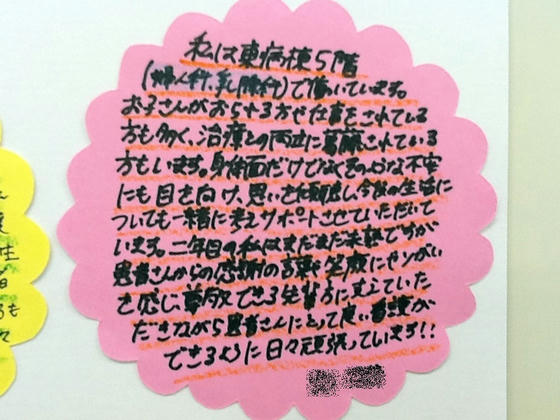 私は東病棟5階
(婦人科、乳腺科)で働いています。
お子さんがおられる方や仕事をされている
方も多く、治療との両立に葛藤されている
方もいます。身体面だけでなくそのような不安
にも目を向け、思いを傾聴し今後の生活に
ついても一緒に考えサポートさせていただいて
います。二年目の私はまだまだ未熟ですが
患者さんからの感謝の言葉や笑顔にやりがい
を感じ尊敬できる先輩方に支えていた
だきながら患者さんにとって良い看護が
できるように日々頑張っています!!
性
も